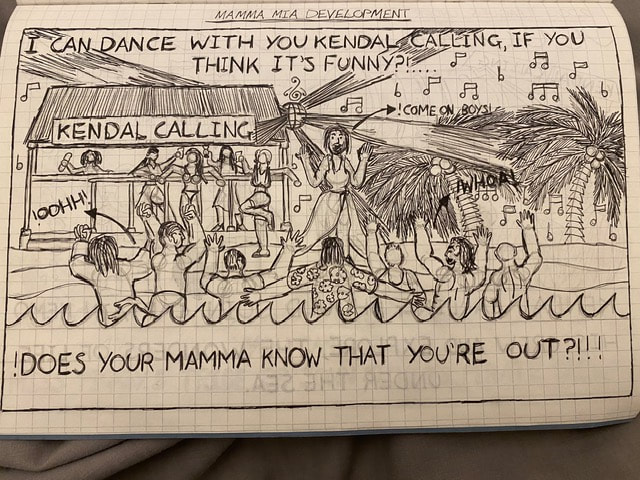 MAMMA MIA DEVELOPMENT
I CAN DANCE WITH YOU KENDAL CALLING, IF YOU
THINK IT'S FUNNY?!......
!COME ON BOYS!
KENDAL CALLING
!WHOA!
!OOHH!
!DOES YOUR MAMMA KNOW THAT YOU'RE OUT?!!!
UNDER THE SEA